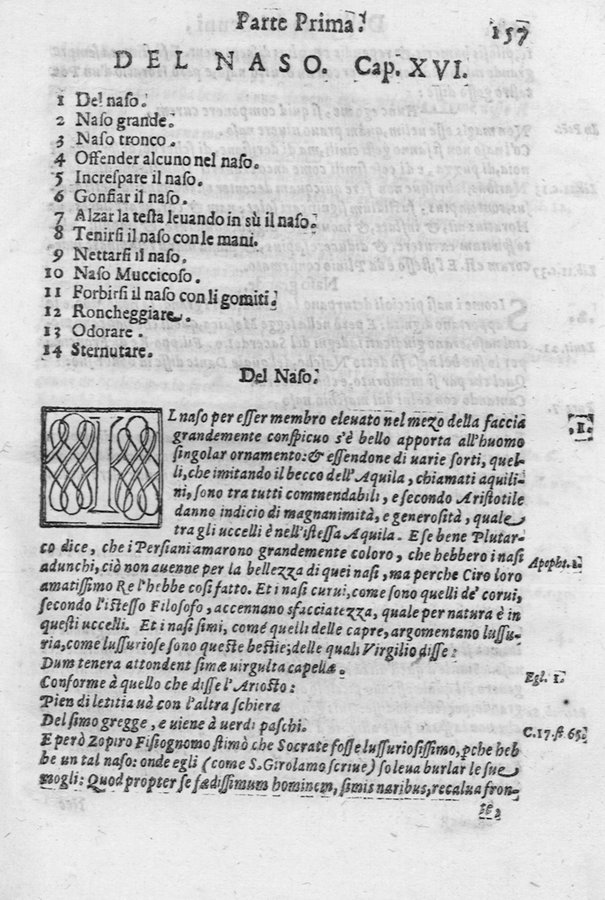 Parte Prima.
157
DEL NASO. Cap. XVI.
1 Del naso.
2 Naso grande.
3 Naso tronco.
4 Offender alcuno nel naso.
5 Increspare il naso.
6 Gonfiar il naso.
7 Alzar la testa leuando in sù il naso.
8 Tenirsi il naso con le mani.
9 Nettarsi il naso.
10 Naso Muccicoso.
11 Forbirsi il naso con li gomiti.
12 Roncheggiare.
13 Odorare.
14 Sternutare.
Del Naso.
IL naso per esser membro eleuato nel mezo della faccia
.1.
grandemente conspicuo s'è bello apporta all'huomo
singolar ornamento: & essendone di uarie sorti, quel-
li, che imitando il becco dell'Aquila, chiamati aquili-
ni, sono tra tutti commendabili, e secondo Aristotile
danno indicio di magnanimità, e generosità, quale
tra gli uccelli è nell'istessa Aquila. E se bene Plutar-
co dice, che i Persiani amarono grandemente coloro, che hebbero i nasi
adunchi, ciò non auenne per la bellezza di quei nasi, ma perche Ciro loro
Apopht. 1.
amatissimo Re l'hebbe cosi fatto. Et i nasi curui, come sono quelli de' corui,
secondo l'istesso Filosofo, accennano sfacciatezza, quale per natura è in
questi uccelli. Et i nasi simi, comé quelli delle capre, argomentano lussu-
ria, come lussuriose sono queste bestie; delle quali Virgilio disse:
Dum tenera attondent simæ uirgulta capellæ.
Egl. 1.
Conforme à quello che disse l'Ariosto:
Pien di letitia uà con l'altra schiera
Del simo gregge, e uiene à uerdi paschi.
C. 17. st. 65.
E però Zopiro Fisiognomo stimò che Socrate fosse lussuriosissimo, pche heb
be un tal naso: onde egli (come S. Girolamo scriue) soleua burlar le sue
mogli: Quod propter se fædissimum hominem, simis naribus, recalua fron-
te,